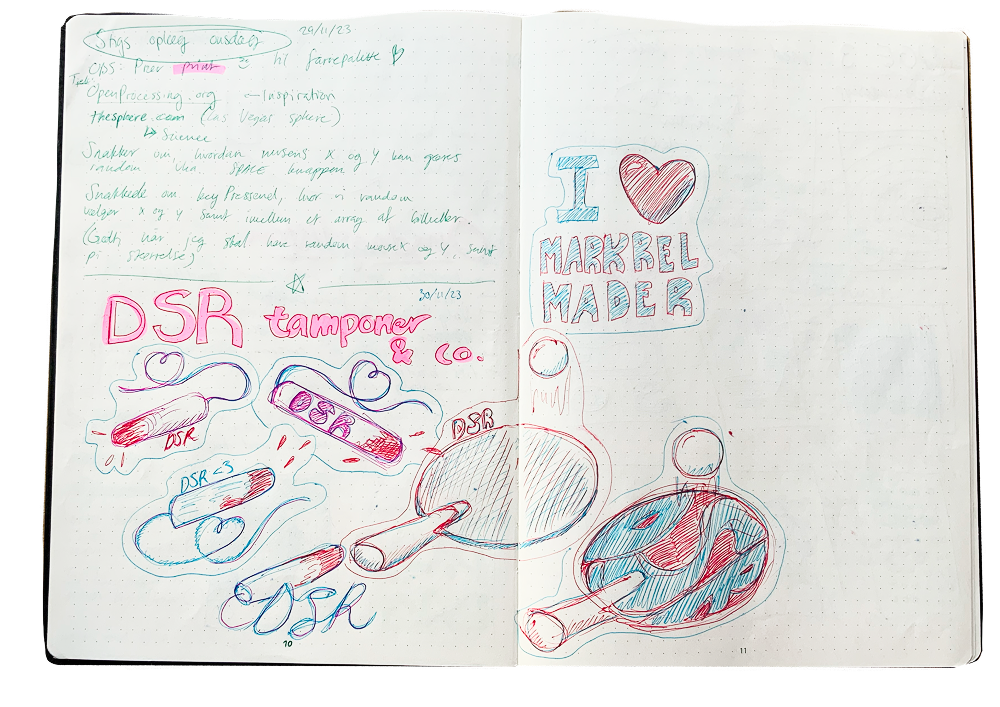 Stigs oplæg onsdag
29/11/23
OBS: Prøv print til farvepalette
Tjek:
OpenProcessing.org — Inspiration
thesphere.com (Las Vegas sphere)
↳ Science
Snakker om, hvordan musens X og Y kan gøres
random via SPACE knappen
Snakkede om keyPressend, hvor vi random
vælger x og y samt imellem et array af billeder.
(Godt, når jeg skal have random mouseX og Y, samt
på størrelse)
30/11/23
DSR tamponer
& co.
DSR
DSR
DSR <3
DSR
DSR
I
MARKREL
MADER
10
11